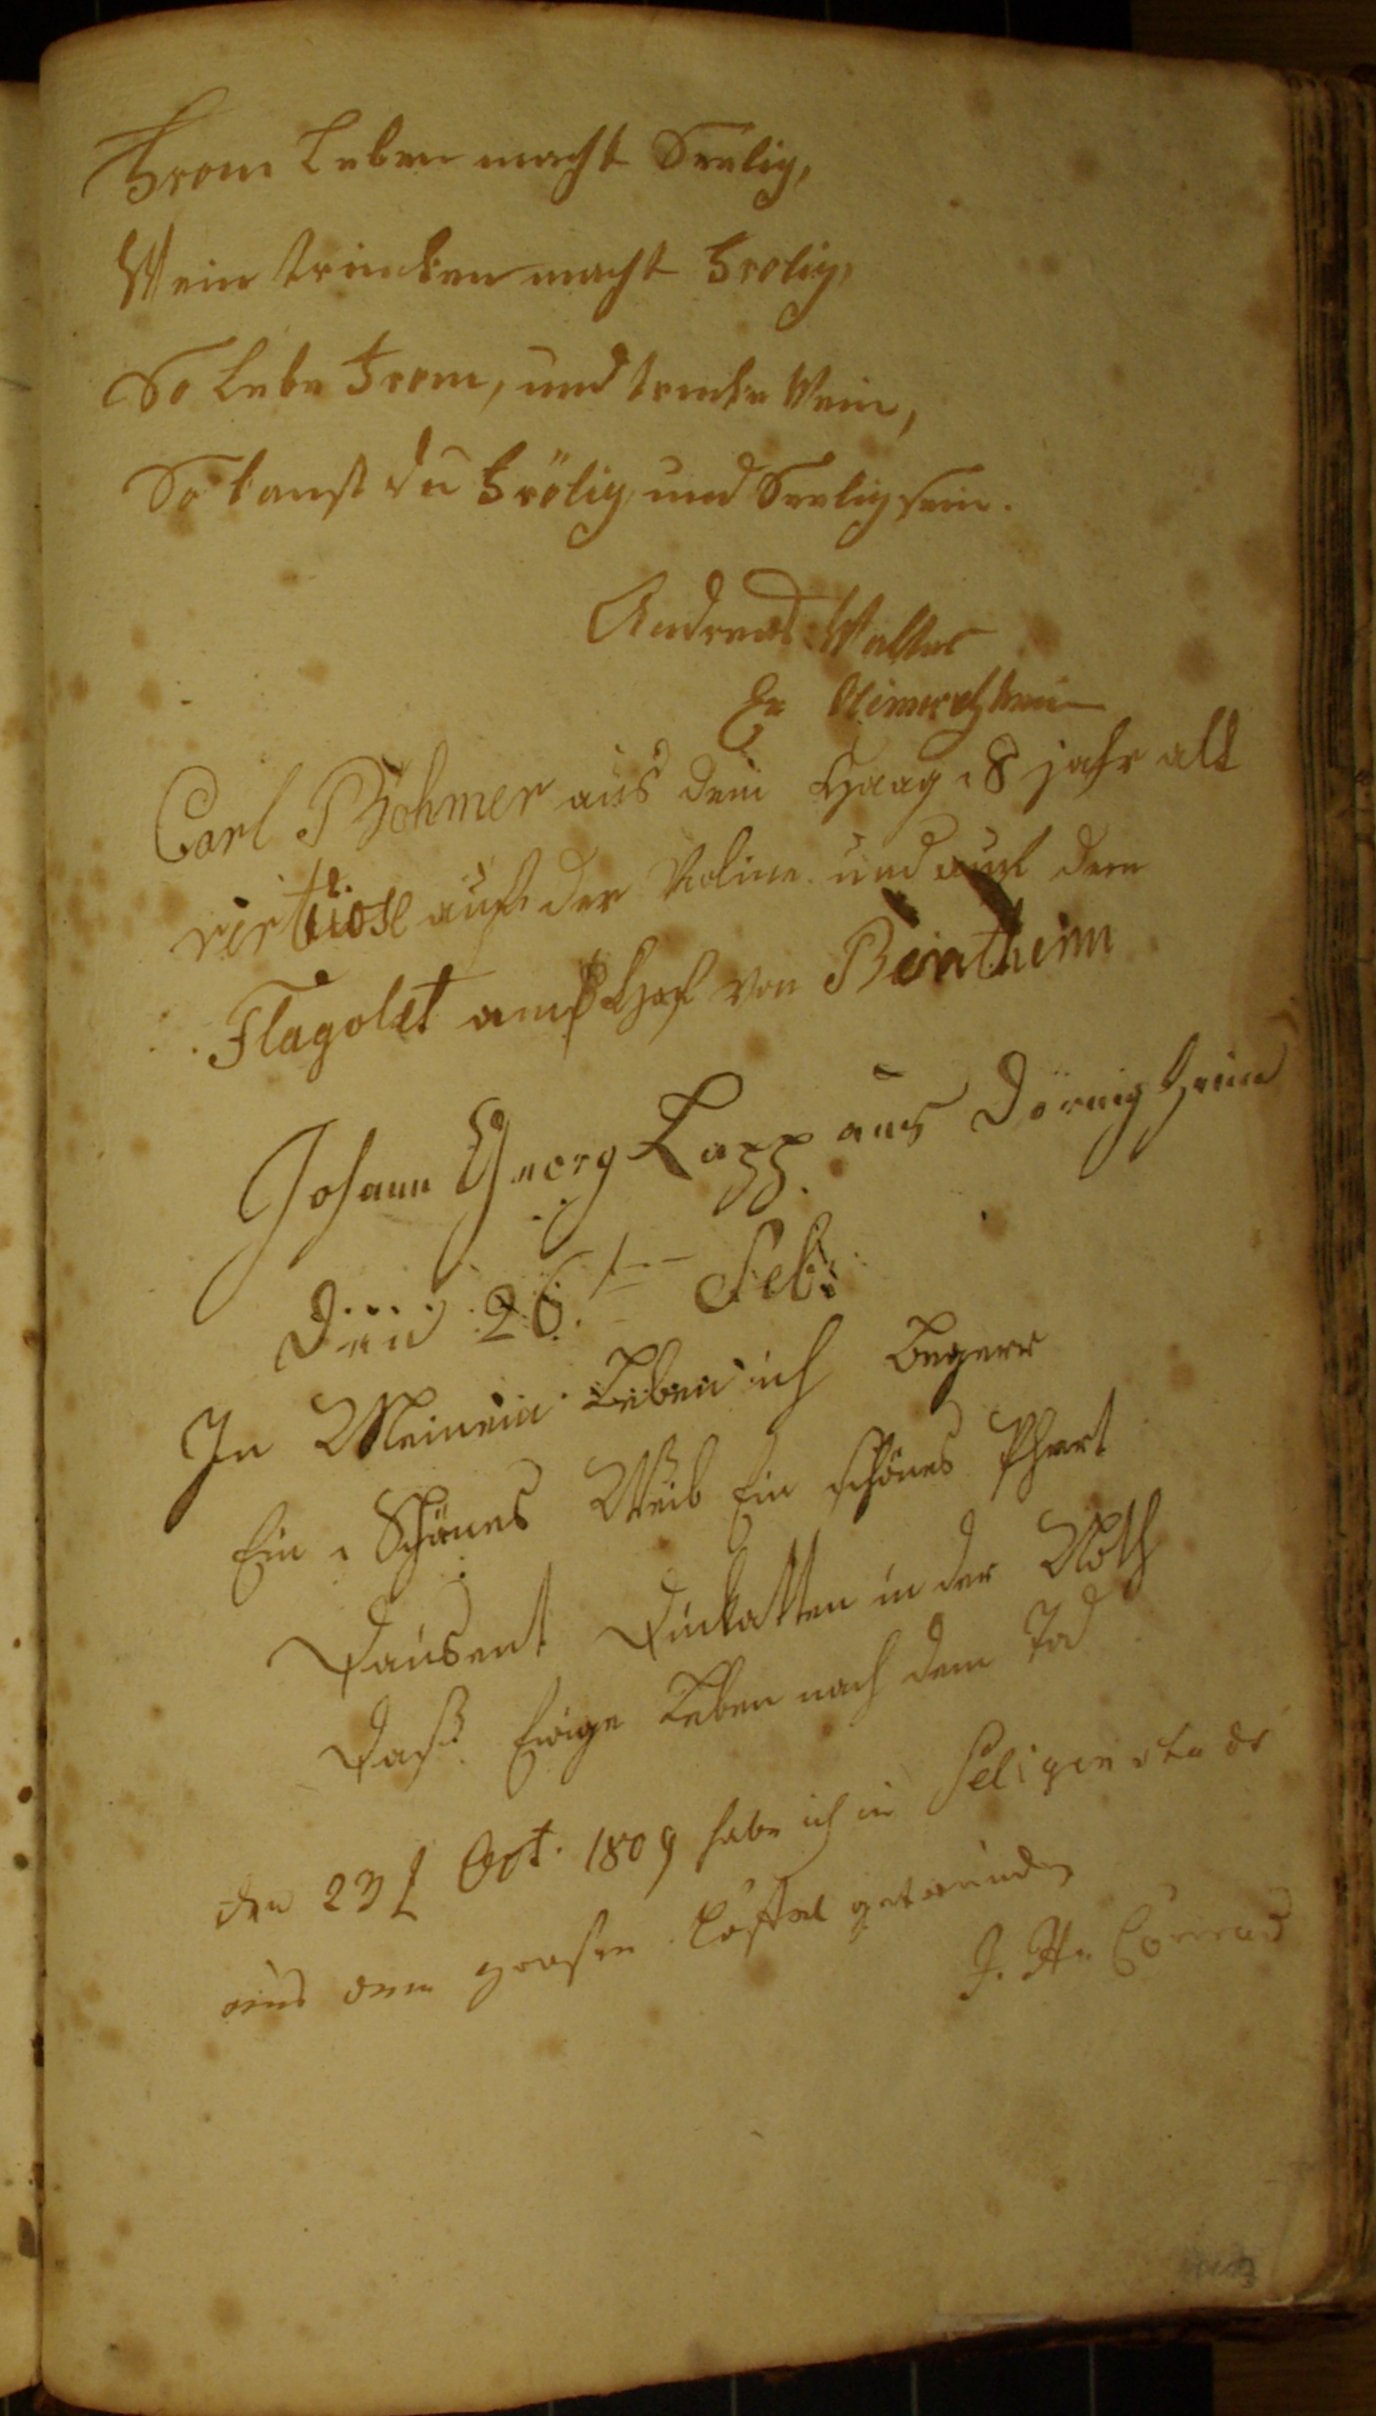 From Leben macht Seelig,
Wein trincken macht Frolig,
So Lebe From, und trincke Wein,
So kanst du Frölig und Seelig sein.
Andreas Walter
Carl Böhmer aus dem Haag 8 jahr alt
virtuose auf der Violine und auf dem
Flagolet am Hof von Bentheim
Johann Georg Lapp aus Dörnigheim
Den 26ten Feb:
In Meinem Leben ich Begerr
Ein Schönes Weib Ein schönes Phert
Dausent Duckatten in der Noth
Daß Ewige Leben nach dem Tod
den 23t Oct. 1809 habe ich in Seligenstadt
aus dem grosen Löffel getrunden
J. H. Conrad